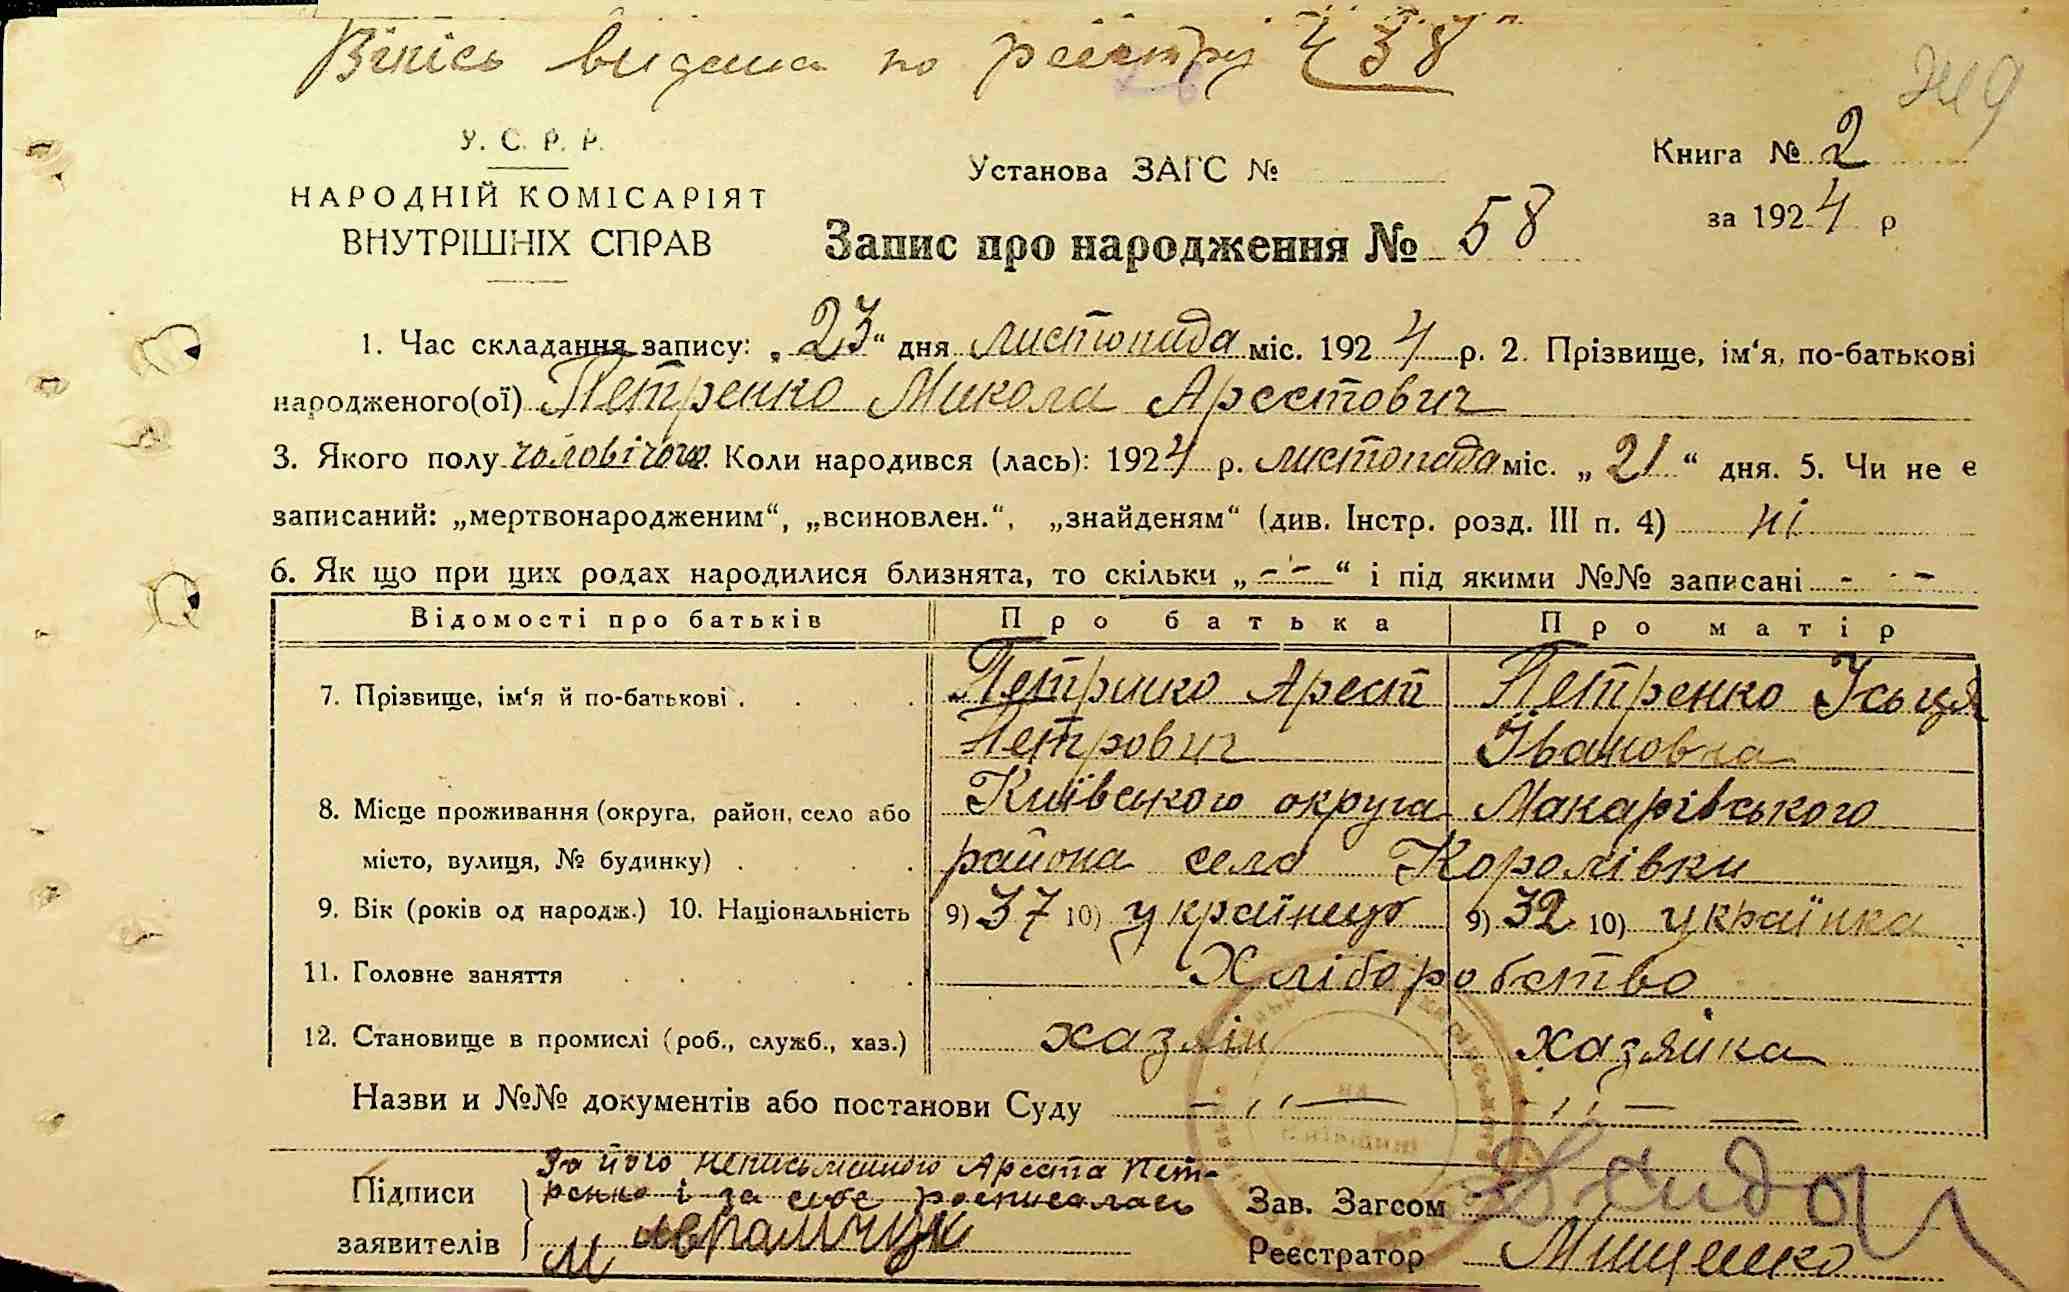 Випісь видана по реєстру 438
249
У. С. Р. Р.
НАРОДНІЙ КОМІСАРІЯТ
ВНУТРІШНІХ СПРАВ
Установа ЗАГС №
Книга № 2
за 1924 р
Запис про народження № 58
1. Час складання запису: „23“ дня листопада міс. 1924 р. 2. Прізвище, ім‘я, по-батькові
народженого(ої) Петренко Микола Арєстович
3. Якого полу чоловічого. Коли народився (лась): 1924 р. листопада міс. „21“ дня. 5. Чи не є
записаний: „мертвонародженим“, „всиновлен.“, „знайденям“ (див. Інстр. розд. III п. 4) ні
6. Як що при цих родах народилися близнята, то скільки „-'-“ і під якими №№ записані - · -
Відомості про батьків Про батька Про матір
7. Прізвище, ім‘я й по-батькові . Петренко Арест Петренко
Петрович Івановна
8. Місце проживання (округа, район, село або Київського округа Макарівського
місто, вулиця, № будинку) . района село Королівки
9. Вік (років од народж.) 10. Національність 9) 37 10) українець 9) 32 10) українка
11. Головне заняття Хліборобство
12. Становище в промислі (роб., служб., хаз.) хазяін хазяйка
Назви и №№ документів або постанови Суду
Підписи заявителів
За його неписьменного Ареста Пет-
ренко і за себе росписалась
М Аврамчук
Зав. Загсом
Реєстратор Мищенко